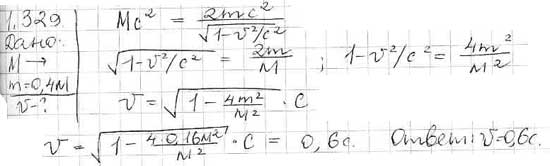 1.329
Дано:
M →
m=0,4M
v-?
Mc² = 2mc²/√(1-v²/c²)
√(1-v²/c²) = 2m/M ; 1-v²/c² = 4m²/M²
v = √(1 - 4m²/M²) · c
v = √(1 - 4·0,16M²/M²) · c = 0,6c. Ответ: v=0,6c.